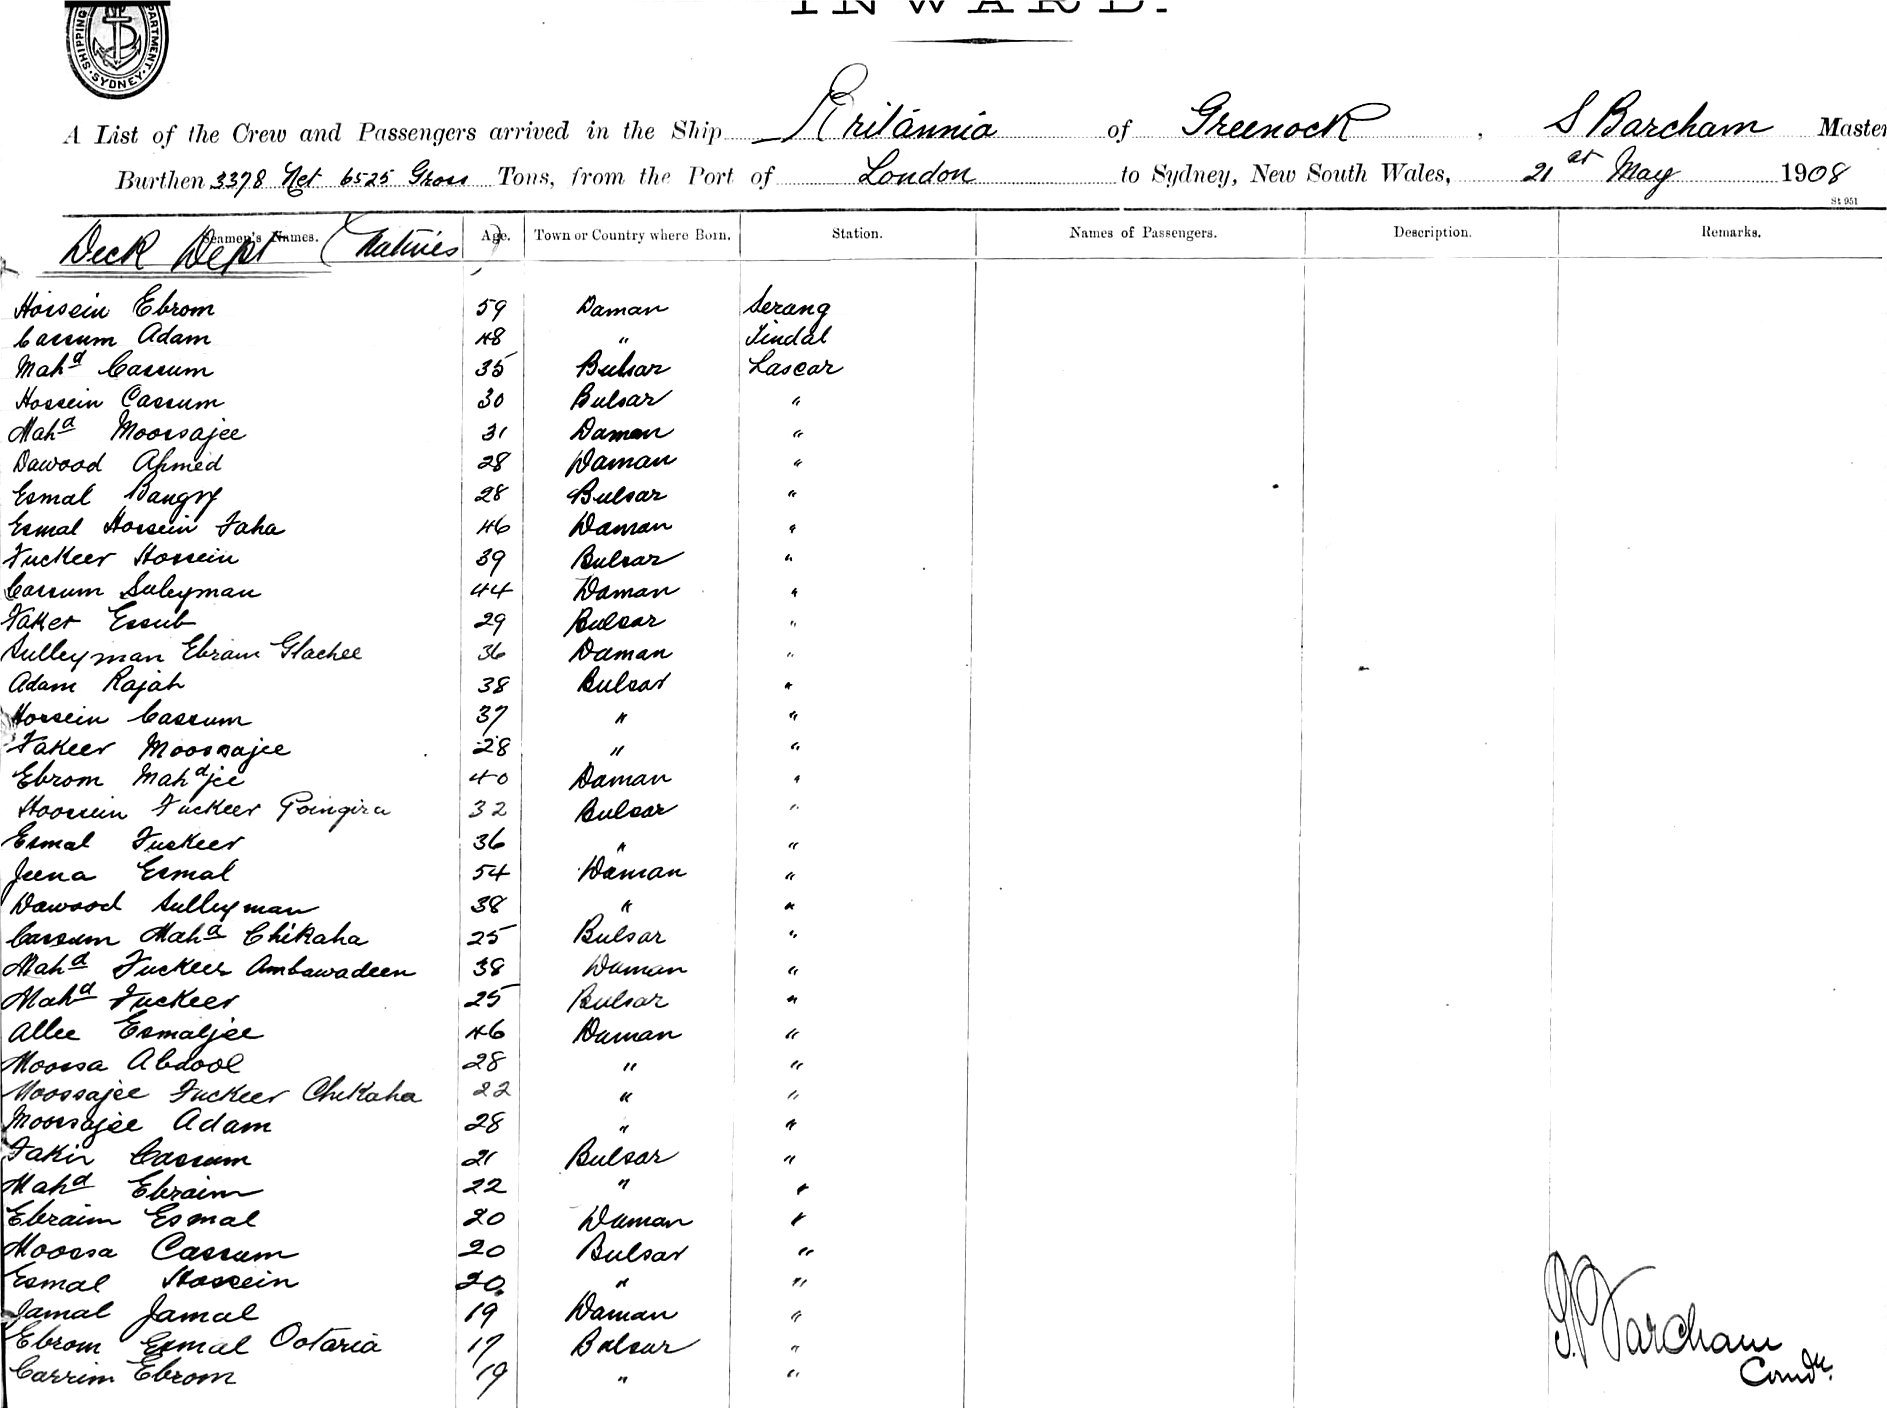 INWARD.
SHIPPING DEPARTMENT. SYDNEY
A List of the Crew and Passengers arrived in the Ship Britannia of Greenock, S Barcham Master
Burthen 3378 Net 6525 Gross Tons, from the Port of London to Sydney, New South Wales, 21st May 1908
St 951
Seamen's Names. Age. Town or Country where Born. Station. Names of Passengers. Description. Remarks.
Deck Dept (Natives)
Hossein Ebrom 59 Daman Serang
Cassum Adam 48 " Tindal
Mahd Cassum 35 Bulsar Lascar
Hossein Cassum 30 Bulsar "
Mahd Moossajee 31 Daman "
Dawood Ahmed 28 Daman "
Esmal Bangy 28 Bulsar "
Esmal Hossein Faha 46 Daman "
Fuckeer Hossein 39 Bulsar "
Cassum Suleyman 44 Daman "
Faker Essub 29 Bulsar "
Sulleyman Ebram Glachee 36 Daman "
Adam Rajah 38 Bulsar "
Hossein Cassum 37 " "
Fakeer Moossajee 28 " "
Ebrom Mahdjee 40 Daman "
Hoossein Fuckeer Poingira 32 Bulsar "
Esmal Fuckeer 36 " "
Jeena Esmal 54 Daman "
Dawood Sulleyman 38 " "
Cassum Mahd Chikaha 25 Bulsar "
Mahd Fuckeer Ambawadeen 38 Daman "
Mahd Fuckeer 25 Bulsar "
Allee Esmaljee 46 Daman "
Moossa Abdool 28 " "
Moossajee Fuckeer Chekaha 22 " "
Moossajee Adam 28 " "
Fakir Cassum 21 Bulsar "
Mahd Ebraim 22 " "
Ebraim Esmal 20 Daman "
Moossa Cassum 20 Bulsar "
Esmal Hossein 20 " "
Jamal Jamal 19 Daman "
Ebrom Esmal Ootaria 17 Bulsar "
Carrim Ebrom 19 " "
S Barcham
Comdr.